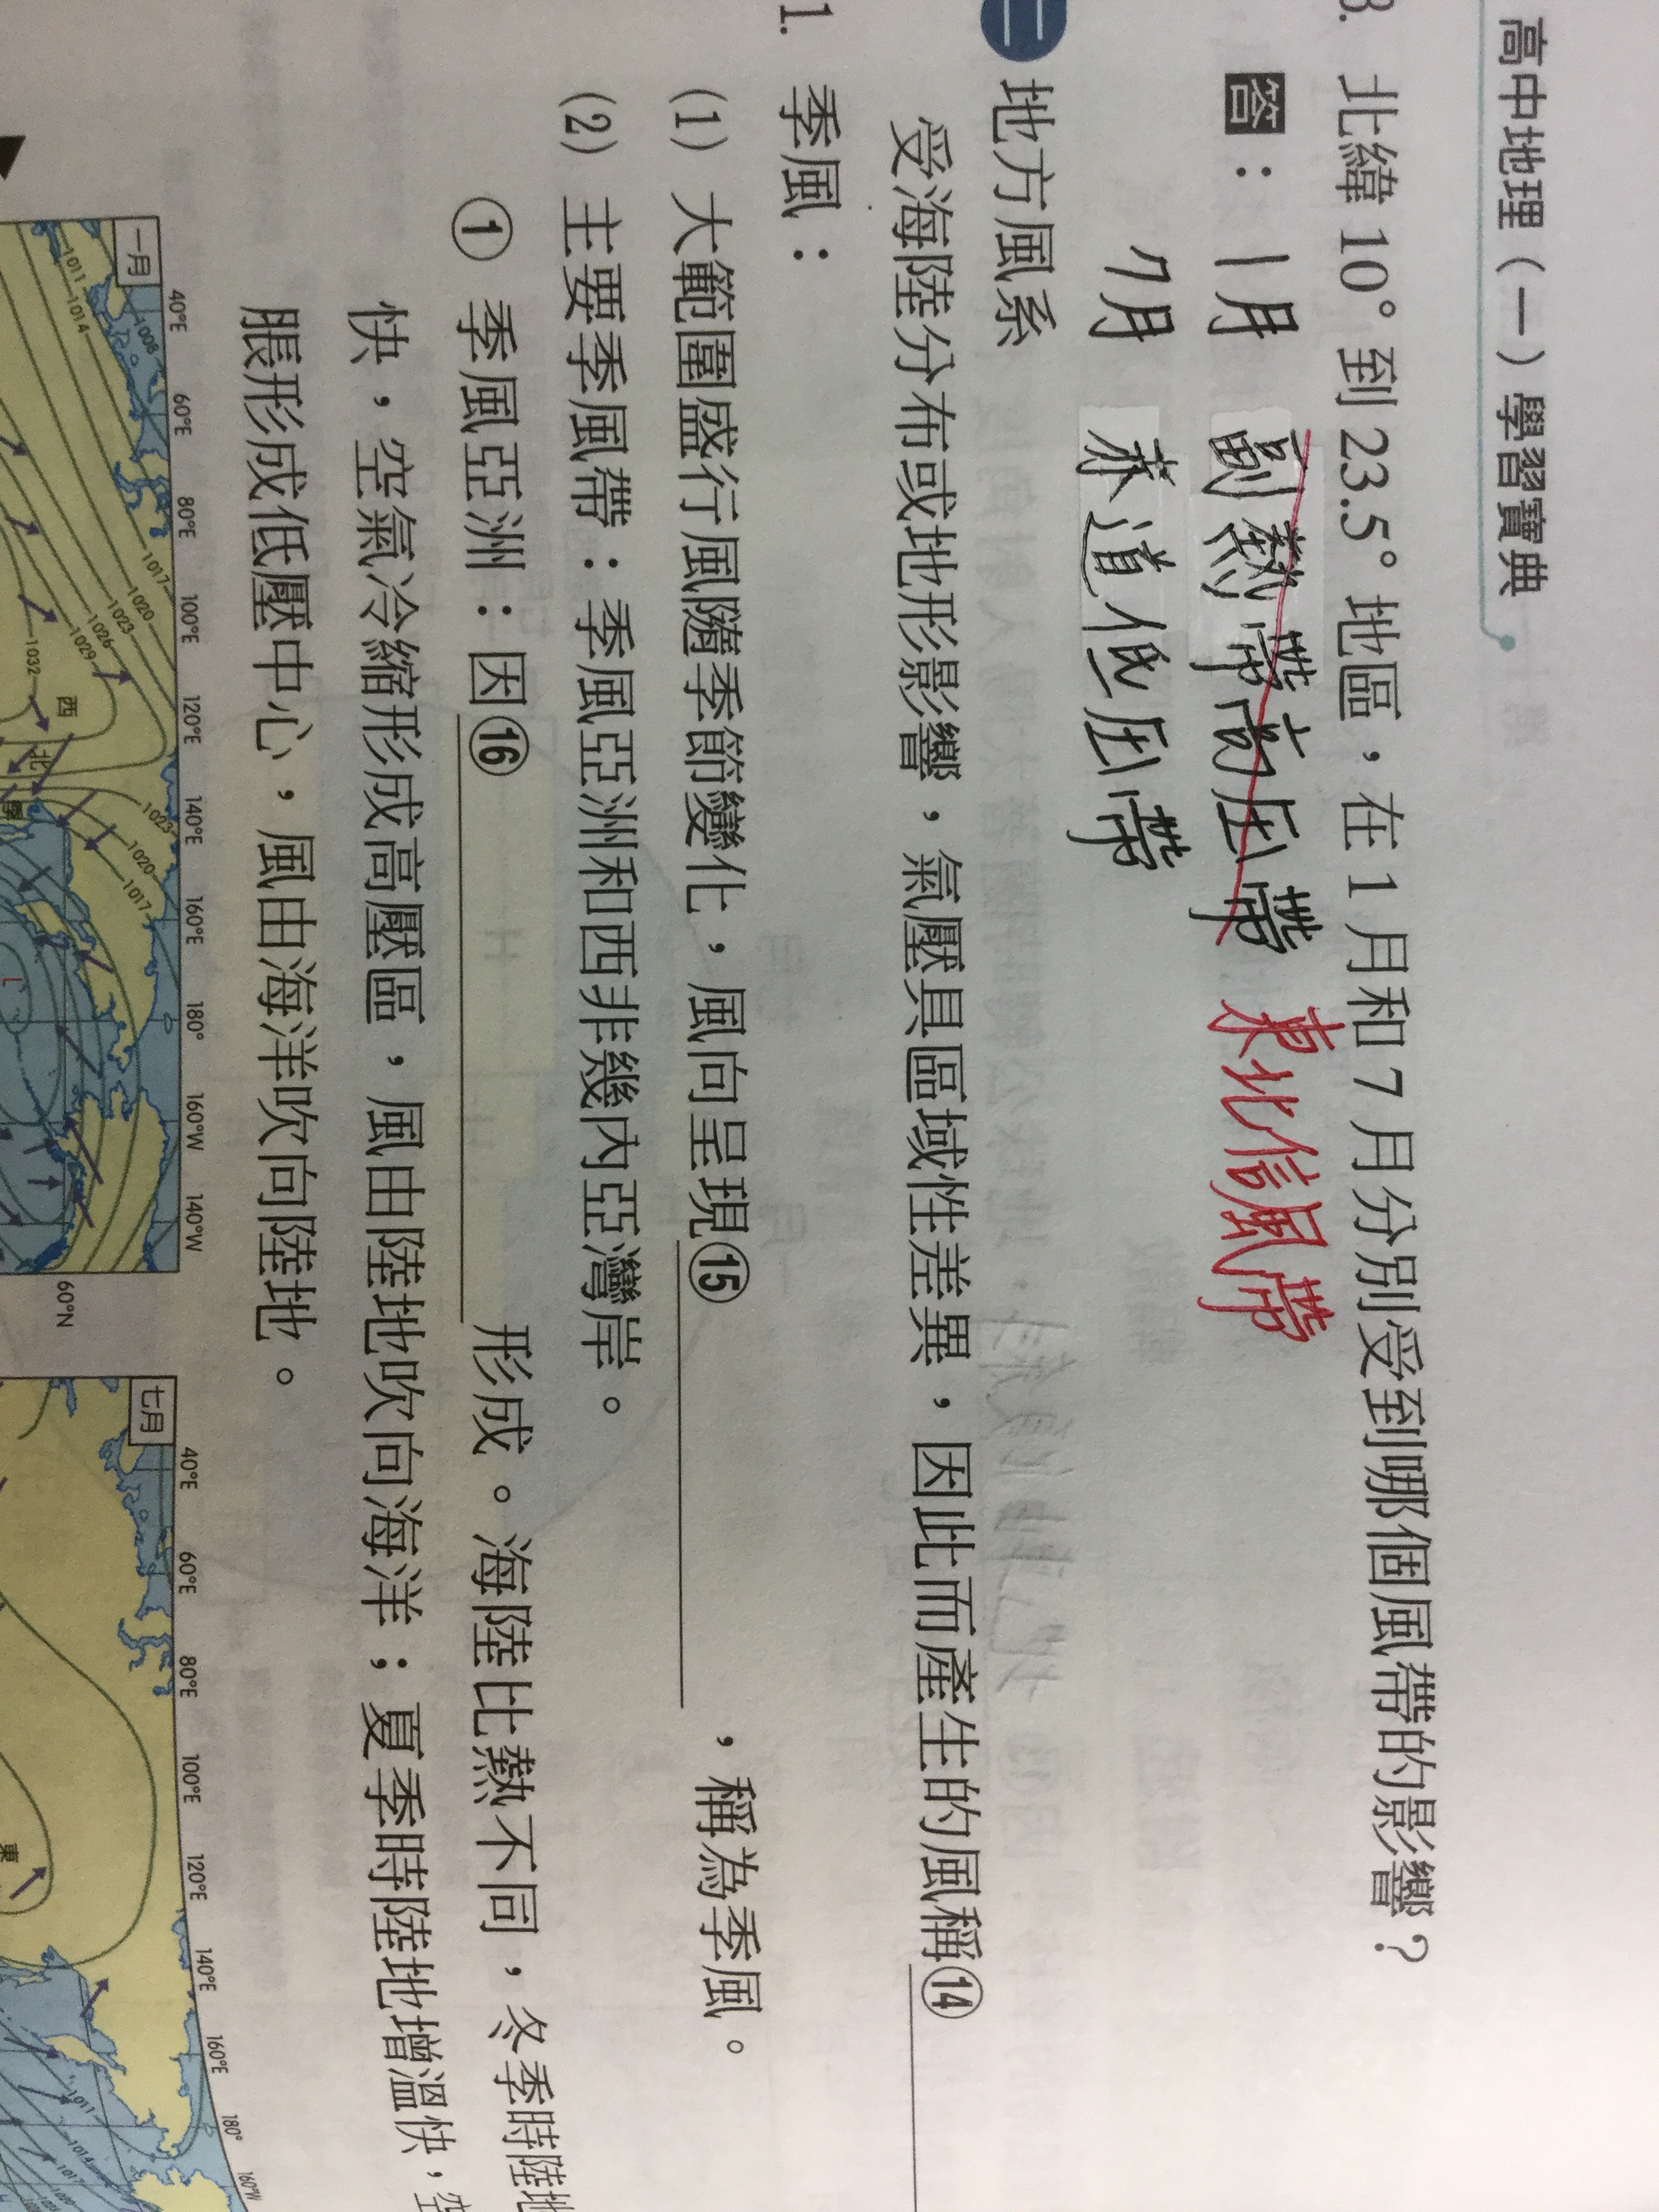 高中地理(一)學習寶典
3. 北緯 10° 到 23.5° 地區，在 1 月和 7 月分別受到哪個風帶的影響？
答：1月 副熱帶高压帶 東北信風帶
7月 赤道低压帶
二 地方風系
受海陸分布或地形影響，氣壓具區域性差異，因此而產生的風稱⑭
1. 季風：
(1) 大範圍盛行風隨季節變化，風向呈現⑮，稱為季風。
(2) 主要季風帶：季風亞洲和西非幾內亞灣岸。
① 季風亞洲：因⑯形成。海陸比熱不同，冬季時陸地
快，空氣冷縮形成高壓區，風由陸地吹向海洋；夏季時陸地增溫快，空
脹形成低壓中心，風由海洋吹向陸地。
40°E 60°E 80°E 100°E 120°E 140°E 160°E 180° 160°W 140°W
一月
1011 1014 1008 1017 1020 1023 1026 1029 1032 1023 1020 1017
西 北 季
L
60°N
40°E 60°E 80°E 100°E 120°E 140°E 160°E 180° 160°W
七月
東
1011 1014 1017